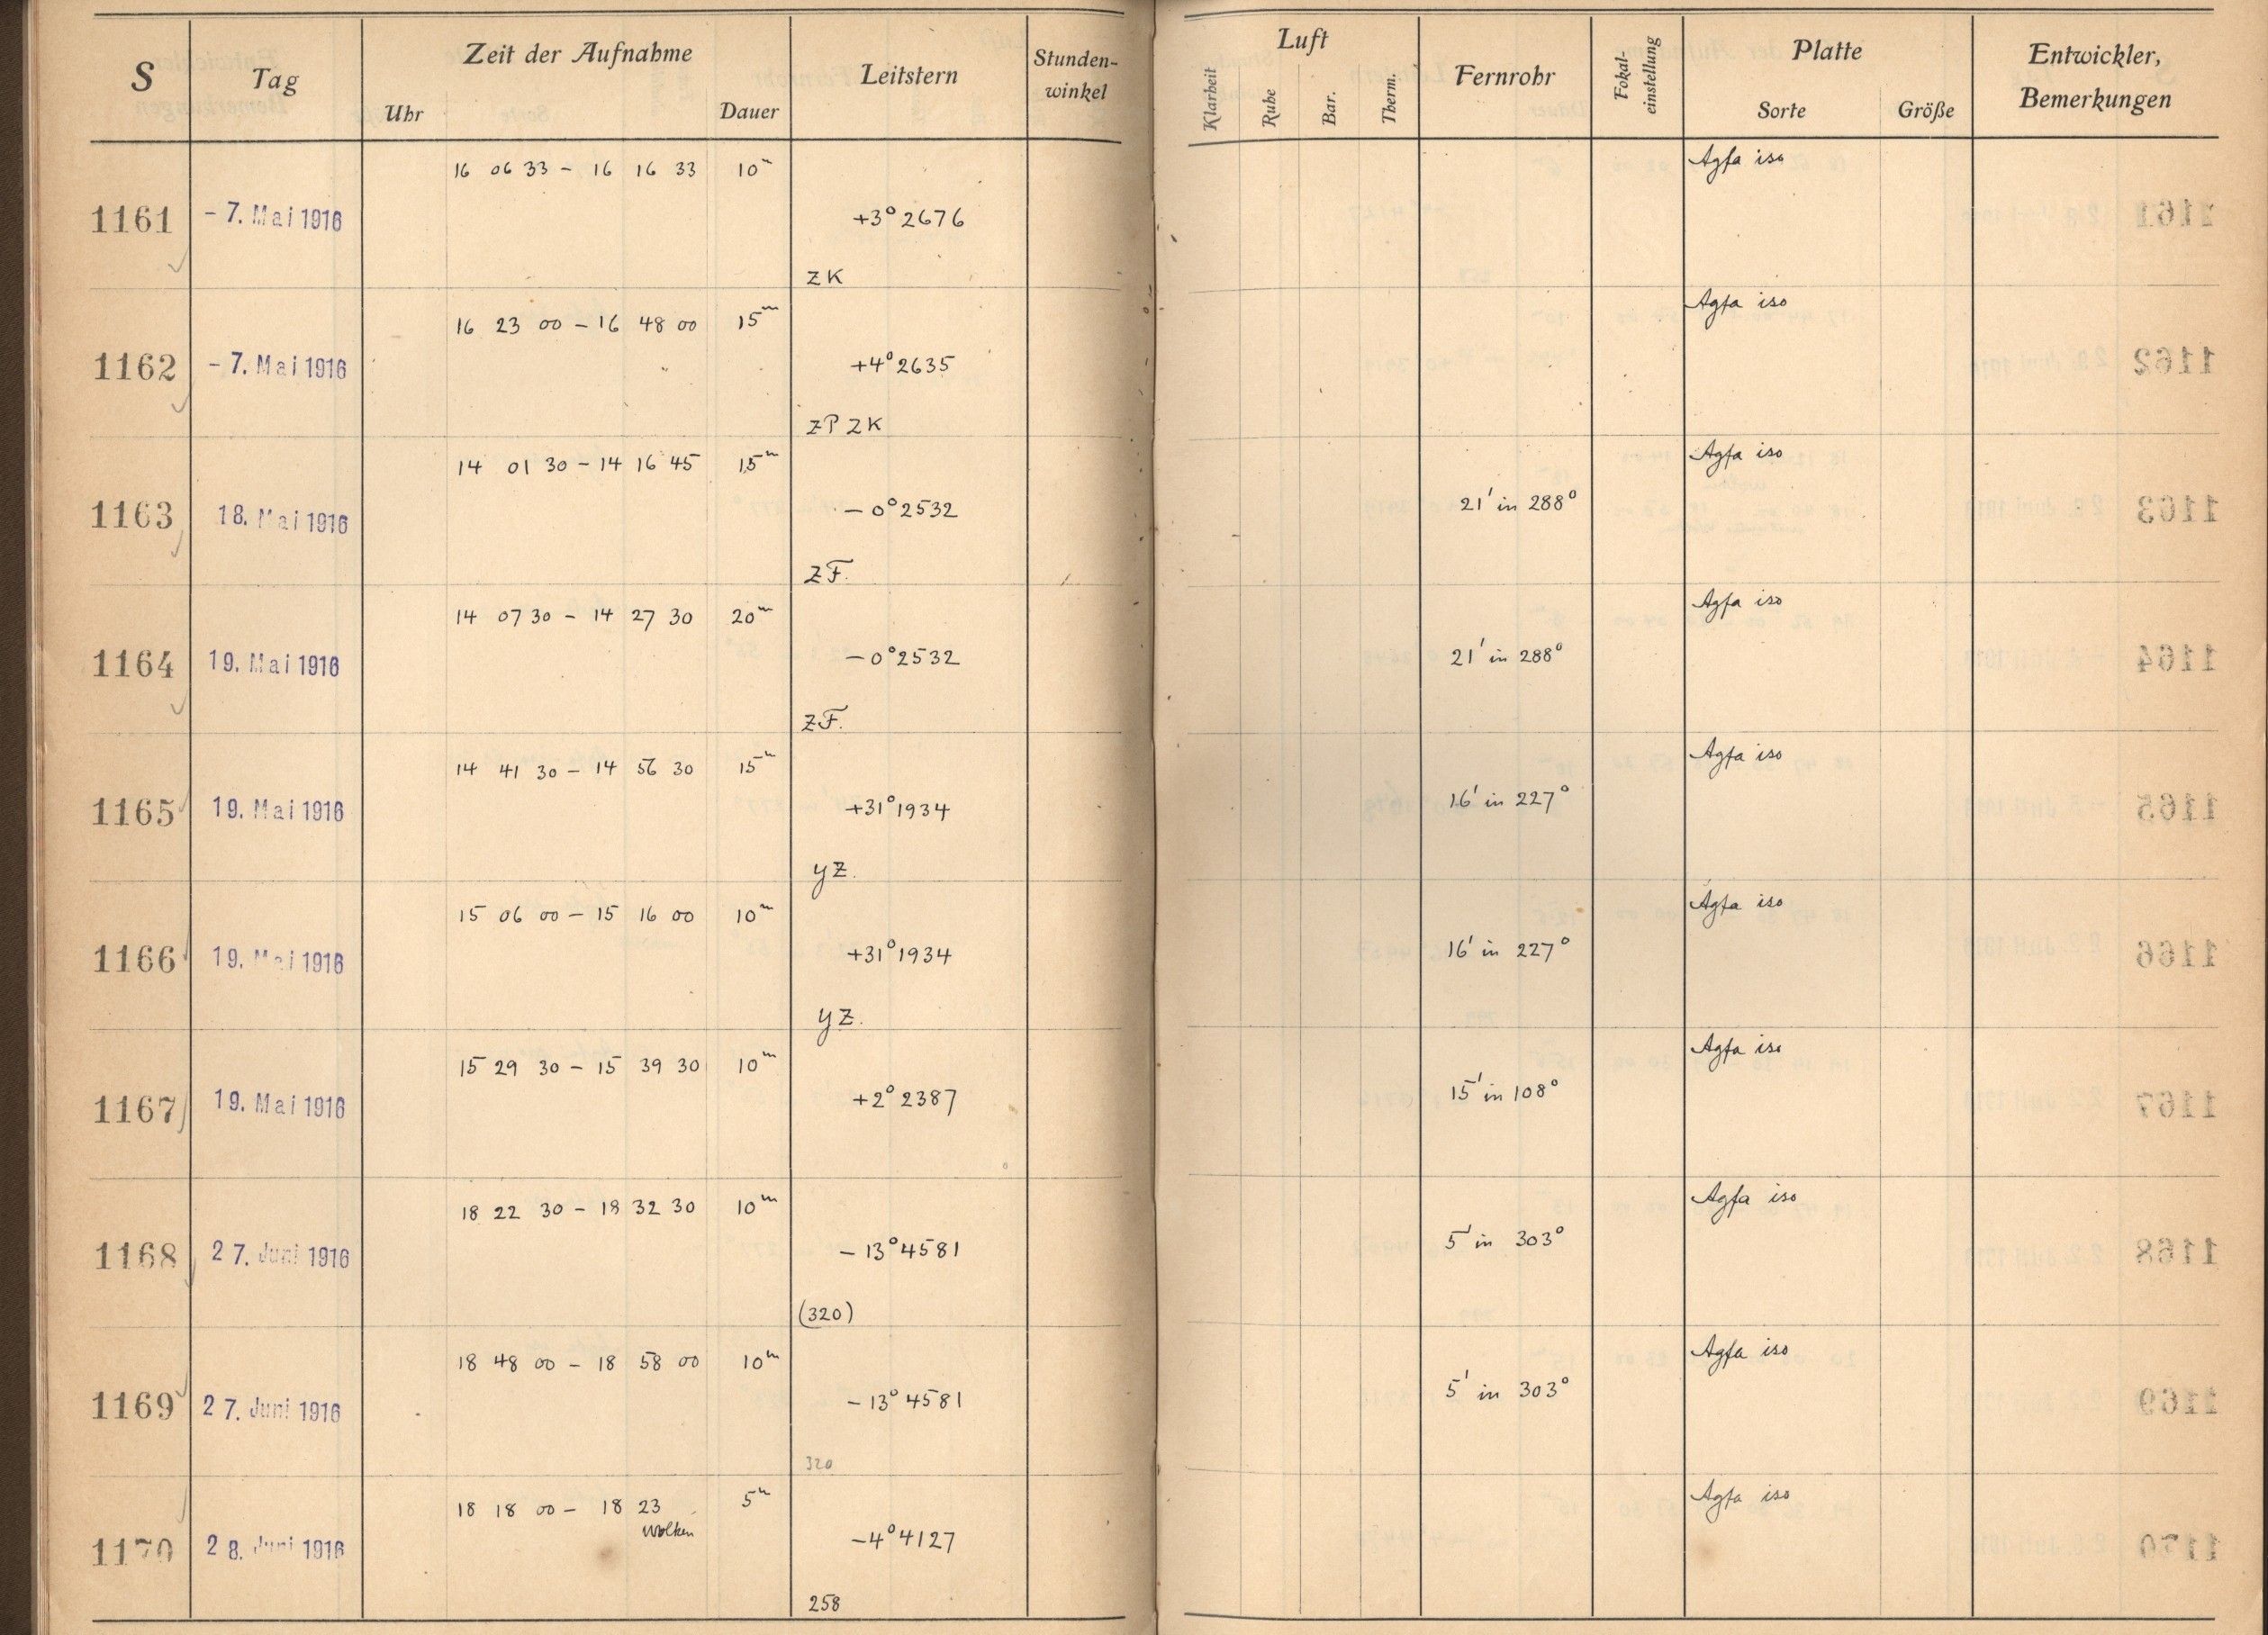 S Tag Zeit der Aufnahme Leitstern Stunden-
winkel
Uhr Dauer
Luft Fernrohr Fokal-
einstellung Platte Entwickler,
Bemerkungen
Klarheit Ruhe Bar. Therm. Sorte Größe
16 06 33 – 16 16 33 10m Agfa iso
1161 – 7. Mai 1916 +3° 2676
ZK
16 23 00 – 16 48 00 15m Agfa iso
1162 – 7. Mai 1916 +4° 2635
ZP ZK
14 01 30 – 14 16 45 15m Agfa iso
1163 18. Mai 1916 – 0° 2532 21' in 288°
ZF.
14 07 30 – 14 27 30 20m Agfa iso
1164 19. Mai 1916 – 0° 2532 21' in 288°
ZF.
14 41 30 – 14 56 30 15m Agfa iso
1165 19. Mai 1916 +31° 1934 16' in 227°
YZ.
15 06 00 – 15 16 00 10m Agfa iso
1166 19. Mai 1916 +31° 1934 16' in 227°
YZ.
15 29 30 – 15 39 30 10m Agfa iso
1167 19. Mai 1916 +2° 2387 15' in 108°
18 22 30 – 18 32 30 10m Agfa iso
1168 27. Juni 1916 – 13° 4581 5' in 303°
(320)
18 48 00 – 18 58 00 10m Agfa iso
1169 27. Juni 1916 – 13° 4581 5' in 303°
320
18 18 00 – 18 23 5m Agfa iso
Wolken
1170 28. Juni 1916 – 4° 4127
258